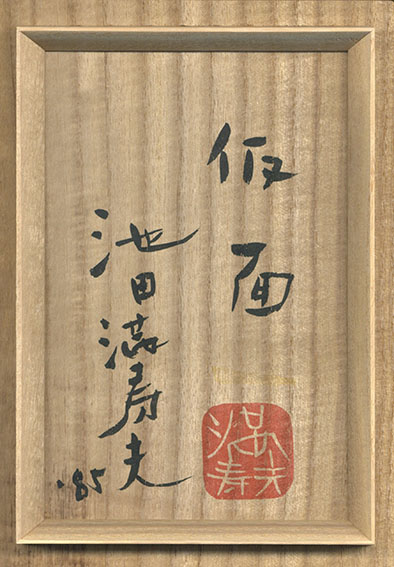 仮面
池田満寿夫
'85
満寿夫